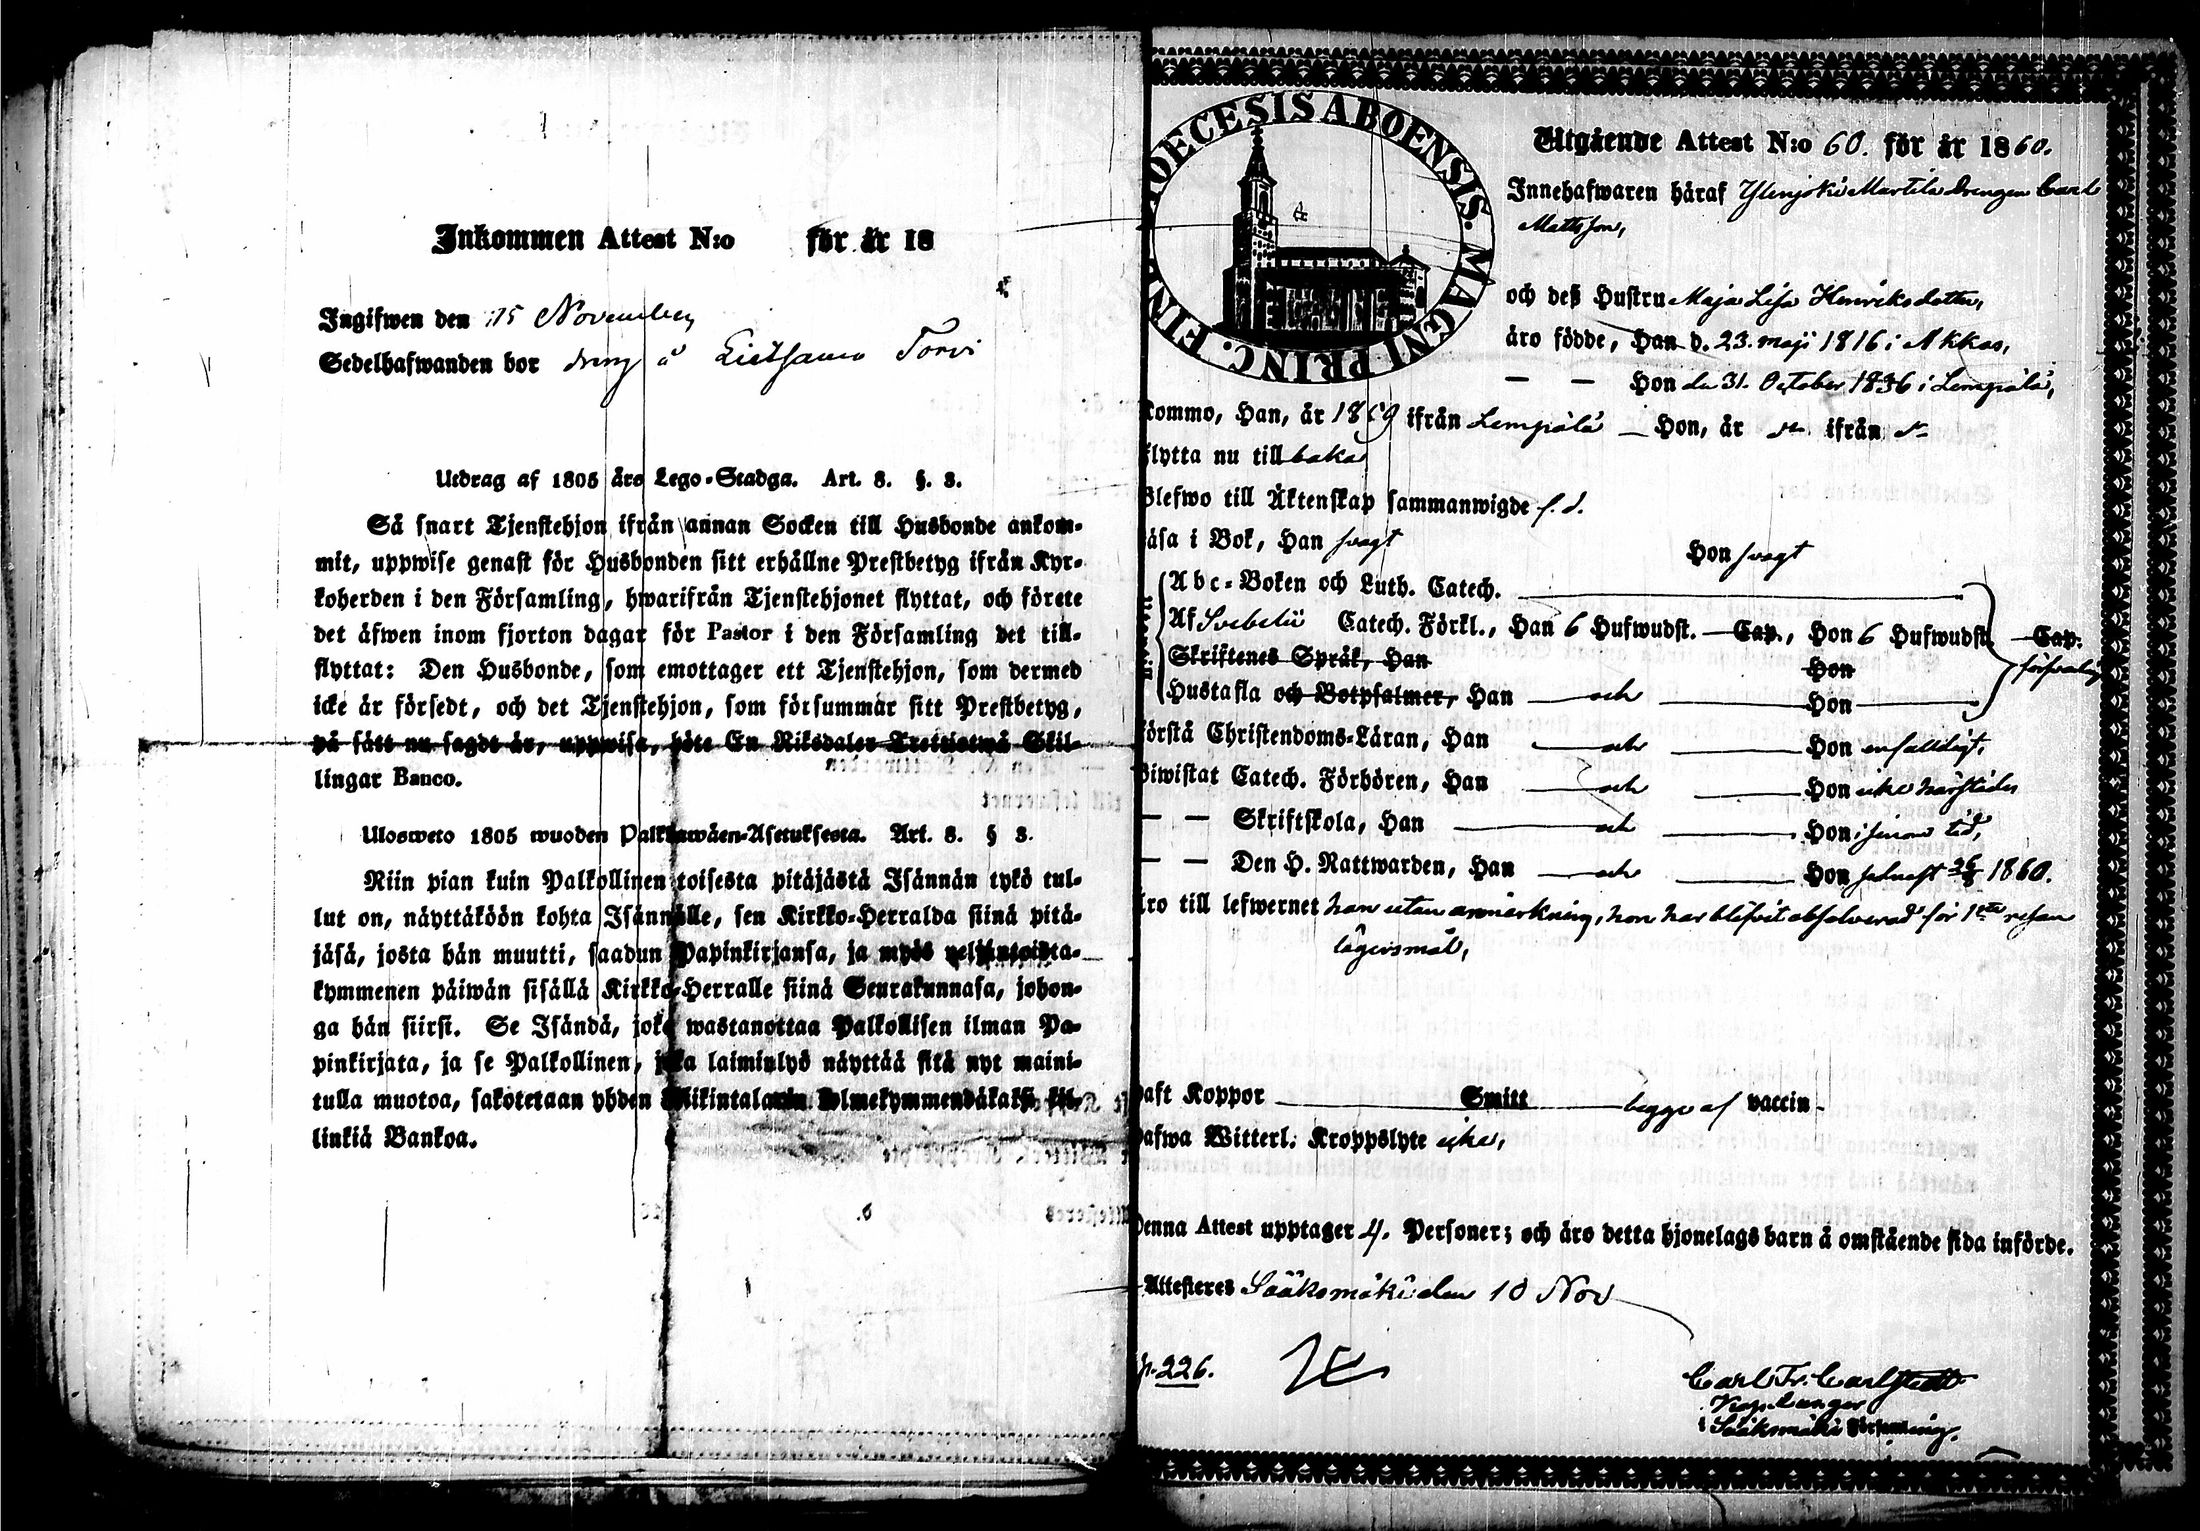 Inkommen Attest N:o för år 18
Ingifwen den 15 November
Sedelhafwanden bor dreng å Lietsamo Torvi
Utdrag af 1805 års Lego-Stadga. Art. 8. §. 3.
Så snart Tjenstehjon ifrån annan Socken till Husbonde ankom-
mit, uppwise genast för Husbonden sitt erhållne Prestbetyg ifrån Kyr-
koherden i den Församling, hwarifrån Tjenstehjonet flyttat, och förete
det äfwen inom fjorton dagar för Pastor i den Församling det till-
flyttat: Den Husbonde, som emottager ett Tjenstehjon, som dermed
icke är försedt, och det Tjenstehjon, som försummar sitt Prestbetyg,
på sätt nu sagdt är, uppwisa, böte En Riksdaler Trettiotwå Skil-
lingar Banco.
Ulosweto 1805 wuoden Palkkawäen-Asetuksesta. Art. 8. § 3.
Niin pian kuin Palkollinen toisesta pitäjästä Isännän tykö tul-
lut on, näyttäköön kohta Isännälle, sen Kirkko-Herralda siinä pitä-
jäsä, josta hän muutti, saadun Papinkirjansa, ja myös neljäntoista-
kymmenen päiwän sisällä Kirkko-Herralle siinä Seurakunnasa, johon-
ga hän siirsi. Se Isändä, joka wastanottaa Palkollisen ilman Pa-
pinkirjata, ja se Palkollinen, joka laiminlyö näyttää sitä nyt maini-
tulla muotoa, sakotetaan yhden Rikintalarin kolmekymmendäkaksi kil-
linkiä Bankoa.
DIOECESIS ABOENSIS. MAGNI PRINC. FINL
Utgående Attest N:o 60. för år 1860.
Innehafwaren häraf Martila Drengen Carl
Mattsson,
och deß Hustru Maja Lisa Henriksdotter,
äro födde, Han d. 23. maji 1816 i Akkas,
— — Hon den 31. October 1836 i Lempälä,
kommo, Han, år 1859 ifrån Lempälä — Hon, år ifrån
flytta nu till baka
Blefwo till Äktenskap sammanwigde f. d.
Läsa i Bok, Han svagt Hon svagt
Abc-Boken och Luth. Catech.
Af Svebelii Catech. Förkl., Han 6 Hufwudst. Cap., Hon 6 Hufwudst. Cap.
Skriftenes Språk, Han Hon
Hustafla och Botpsalmer, Han och Hon
förstå Christendoms-Läran, Han och Hon enfaldigt,
Biwistat Catech. Förhören, Han och Hon icke härstädes
— — Skriftskola, Han och Hon i sinom tid,
— — Den H. Nattwarden, Han och Hon senast 26/8 1860.
äro till lefwernet han utan anmärkning, hon har blifvit absolverad för 1sta resan
lägersmål,
haft Koppor Smitt begge af vaccin
hafwa Witterl. Kroppslyte icke,
Denna Attest upptager 4. Personer; och äro detta hjonelags barn å omstående sida införde.
Attesteres Sääksmäki den 10 Nov
p. 226.
Carl Fr. Carlstedt
i Sääksmäki Församling.